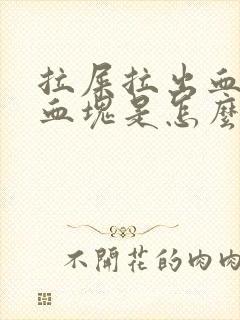 拉屎拉出血
血塊是怎麼
不開花的肉肉